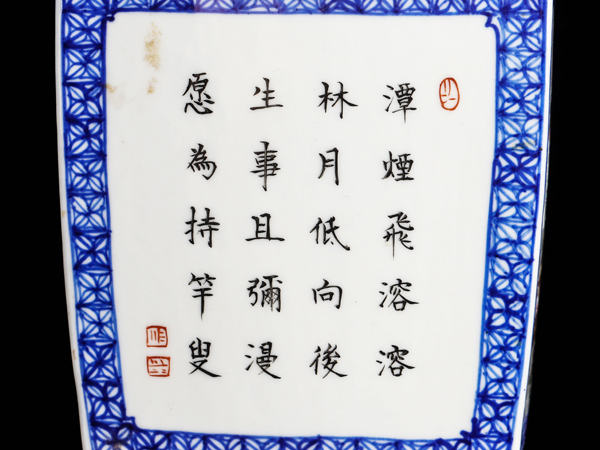 潭煙飛溶溶
林月低向後
生事且彌漫
愿為持竿叟